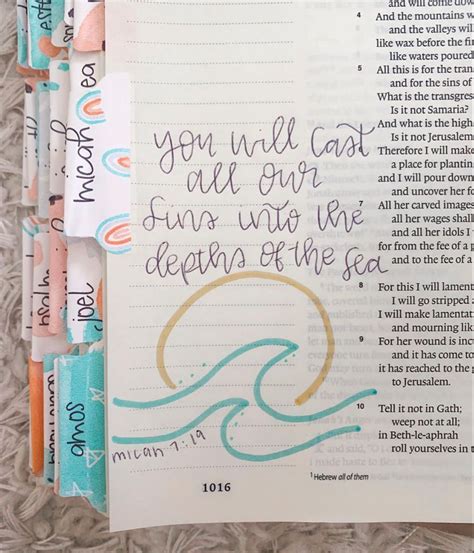 micah
ea
joel
amos
you will cast
all our
sins into the
depths of the sea
micah 7:19
1016
and will come down
4 And the mountains w
and the valleys will
like wax before the fi
like waters poured
5 All this is for the tran
and for the sins of
What is the transgres
Is it not Samaria?
And what is the high
Is it not Jerusalem
Therefore I will make
a place for plantin
and I will pour down
and uncover her fo
7 All her carved images
all her wages shall
and all her idols I
for from the fee of a
and to the fee of a
8 For this I will lament
I will go stripped a
I will make lamentati
and mourning like
9 For her wound is incu
and it has come to
it has reached to the
to Jerusalem.
10 Tell it not in Gath;
weep not at all;
in Beth-le-aphrah
roll yourselves in t
1 Hebrew all of them